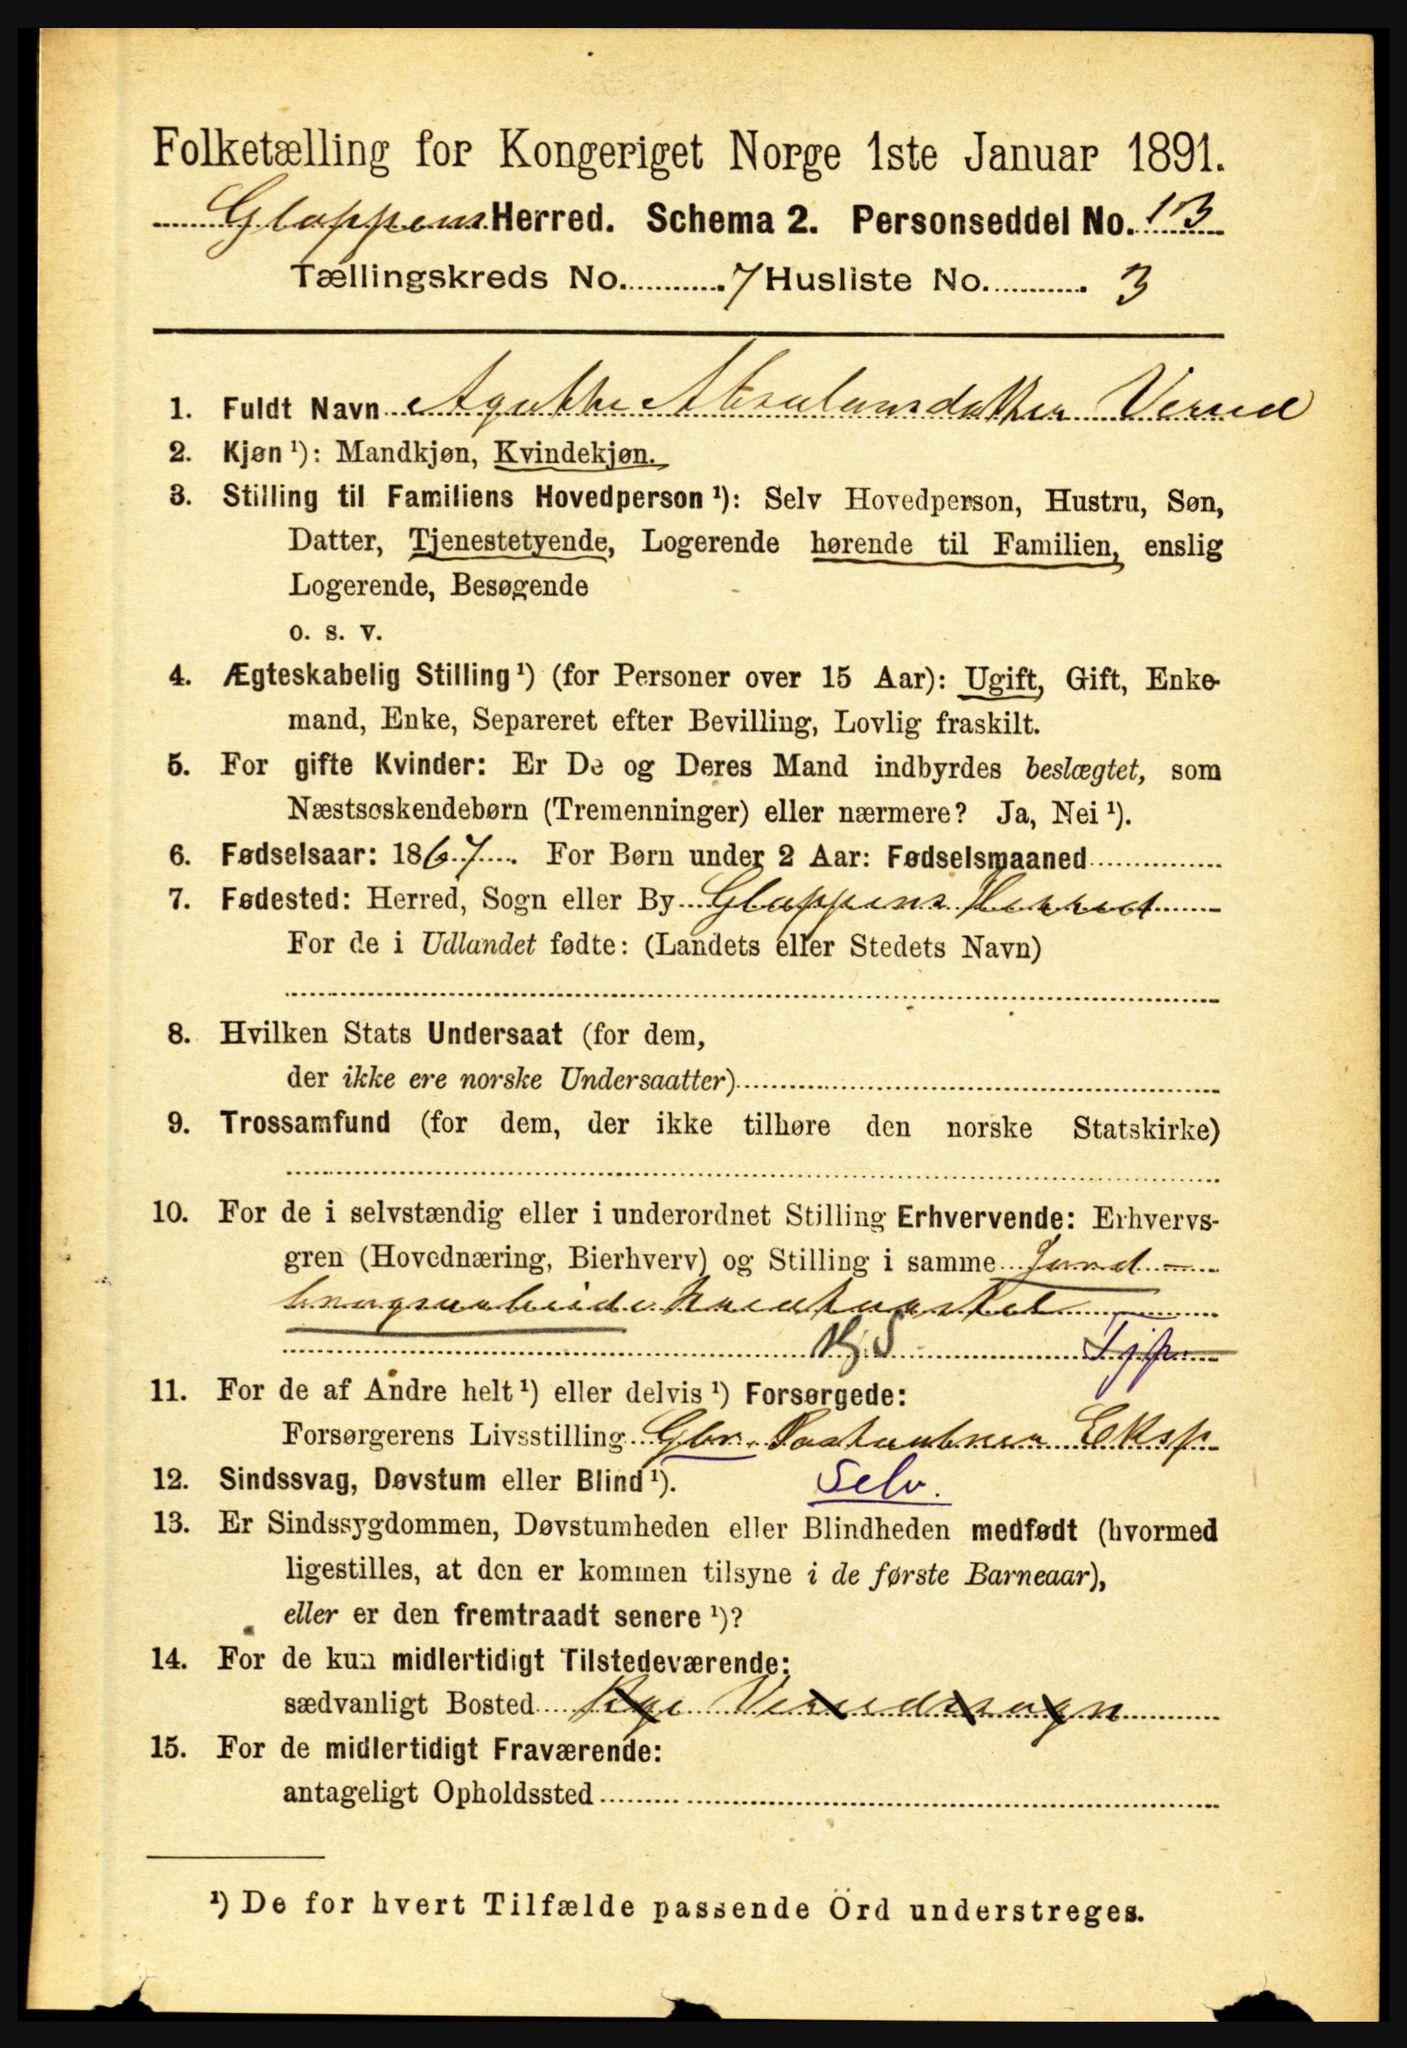 Folketælling for Kongeriget Norge 1ste Januar 1891.
Gloppens Herred. Schema 2. Personseddel No. 13
Tællingskreds No. 7 Husliste No. 3
1. Fuldt Navn Agathe Absalonsdatter Vereid
2. Kjøn ¹): Mandkjøn, Kvindekjøn.
3. Stilling til Familiens Hovedperson ¹): Selv Hovedperson, Hustru, Søn,
Datter, Tjenestetyende, Logerende hørende til Familien, enslig
Logerende, Besøgende
o. s. v.
4. Ægteskabelig Stilling ¹) (for Personer over 15 Aar): Ugift, Gift, Enke-
mand, Enke, Separeret efter Bevilling, Lovlig fraskilt.
5. For gifte Kvinder: Er De og Deres Mand indbyrdes beslægtet, som
Næstsøskendebørn (Tremenninger) eller nærmere? Ja, Nei ¹).
6. Fødselsaar: 1867. For Børn under 2 Aar: Fødselsmaaned
7. Fødested: Herred, Sogn eller By Gloppens Herred
For de i Udlandet fødte: (Landets eller Stedets Navn)
8. Hvilken Stats Undersaat (for dem,
der ikke ere norske Undersaatter)
9. Trossamfund (for dem, der ikke tilhøre den norske Statskirke)
10. For de i selvstændig eller i underordnet Stilling Erhvervende: Erhvervs-
gren (Hovednæring, Bierhverv) og Stilling i samme Jord-
brugsarbeide Kreaturstel
Tjp.
11. For de af Andre helt ¹) eller delvis ¹) Forsørgede:
Forsørgerens Livsstilling Gbr. Postaabner Eksp
12. Sindssvag, Døvstum eller Blind ¹). Selv.
13. Er Sindssygdommen, Døvstumheden eller Blindheden medfødt (hvormed
ligestilles, at den er kommen tilsyne i de første Barneaar),
eller er den fremtraadt senere ¹)?
14. For de kun midlertidigt Tilstedeværende:
sædvanligt Bosted Rye Vereidssogn
15. For de midlertidigt Fraværende:
antageligt Opholdssted
¹) De for hvert Tilfælde passende Ord understreges.